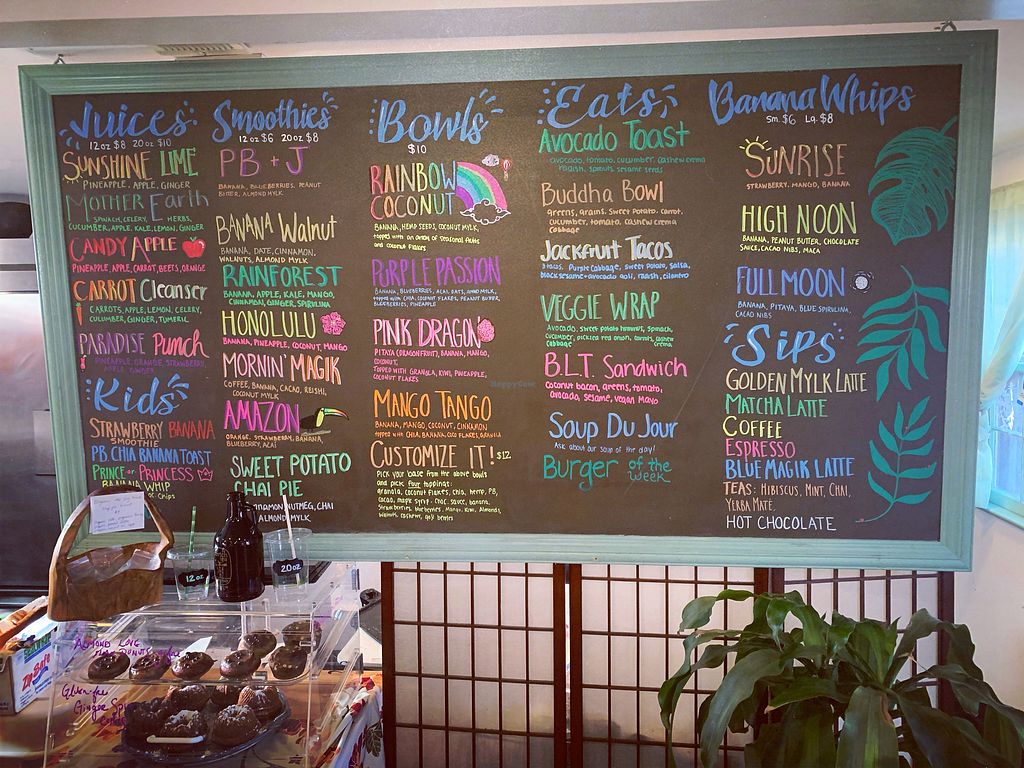 Juices
12oz $8 20oz $10
SUNSHINE LIME
PINEAPPLE, APPLE, GINGER
MOTHER Earth
SPINACH, CELERY, HERBS,
CUCUMBER, APPLE, KALE, LEMON, GINGER
CANDY APPLE
PINEAPPLE, APPLE, CARROT, BEETS, ORANGE
CARROT Cleanser
CARROTS, APPLE, LEMON, CELERY,
CUCUMBER, GINGER, TUMERIC
PARADISE PUNCH
PINEAPPLE, ORANGE, STRAWBERRY,
APPLE, GINGER
Kids
STRAWBERRY BANANA
SMOOTHIE
PB CHIA BANANA TOAST
PRINCE or PRINCESS
BANANA WHIP
Smoothies
12oz $6 20oz $8
PB + J
BANANA, BLUEBERRIES, PEANUT
BUTTER, ALMOND MYLK
BANANA Walnut
BANANA, DATE, CINNAMON,
WALNUTS, ALMOND MYLK
RAINFOREST
BANANA, APPLE, KALE, MANGO,
CINNAMON, GINGER, SPIRULINA
HONOLULU
BANANA, PINEAPPLE, COCONUT, MANGO
MORNIN' MAGIK
COFFEE, BANANA, CACAO, REISHI,
COCONUT MYLK
AMAZON
ORANGE, STRAWBERRY, BANANA,
BLUEBERRY, ACAI
SWEET POTATO
CHAI PIE
CINNAMON, NUTMEG, CHAI
ALMOND MYLK
Bowls
$10
RAINBOW
COCONUT
BANANA, HEMP SEEDS, COCONUT MYLK,
topped with an array of seasonal fruits
and coconut flakes
PURPLE PASSION
BANANA, BLUEBERRIES, ACAI, OATS, ALMOND MYLK,
topped with CHIA, COCONUT FLAKES, PEANUT BUTTER,
BLUEBERRIES, PINEAPPLE
PINK DRAGON
PITAYA (DRAGONFRUIT), BANANA, MANGO,
COCONUT,
TOPPED WITH GRANOLA, KIWI, PINEAPPLE,
COCONUT FLAKES
MANGO TANGO
BANANA, MANGO, COCONUT, CINNAMON
topped with CHIA, BANANA, COCO FLAKES, GRANOLA
CUSTOMIZE IT! $12
Pick your base from the above bowls
and pick four toppings:
granola, coconut flakes, chia, hemp, PB,
cacao, maple syrup, choc. sauce, banana,
Strawberries, blueberries, Mango, Kiwi, Almonds,
Walnuts, cashews, goji berries
Eats
AVOCADO TOAST
avocado, tomato, cucumber, cashew crema
radish, sprouts, sesame seeds
BUDDHA BOWL
greens, grains, sweet potato, carrot,
cucumber, tomato, cashew crema
cabbage
JACKFRUIT TACOS
3 tacos, Purple cabbage, sweet potato, salsa,
black sesame + avocado aoli, radish, cilantro
VEGGIE WRAP
Avocado, sweet potato hummus, spinach,
cucumber, pickled red onion, carrots, cashew
cabbage crema
B.L.T. SANDWICH
coconut bacon, greens, tomato,
avocado, sesame, vegan mayo
SOUP DU JOUR
Ask about our soup of the day!
BURGER of the
week
Banana Whips
Sm. $6 Lg. $8
SUNRISE
STRAWBERRY, MANGO, BANANA
HIGH NOON
BANANA, PEANUT BUTTER, CHOCOLATE
SAUCE, CACAO NIBS, MACA
FULL MOON
BANANA, PITAYA, BLUE SPIRULINA,
CACAO NIBS
Sips
GOLDEN MYLK LATTE
MATCHA LATTE
COFFEE
ESPRESSO
BLUE MAGIK LATTE
TEAS: HIBISCUS, MINT, CHAI,
YERBA MATE
HOT CHOCOLATE
HappyCow
12oz
20oz
ALMOND LOVE
DONUTS
Gluten-free
Ginger Spice